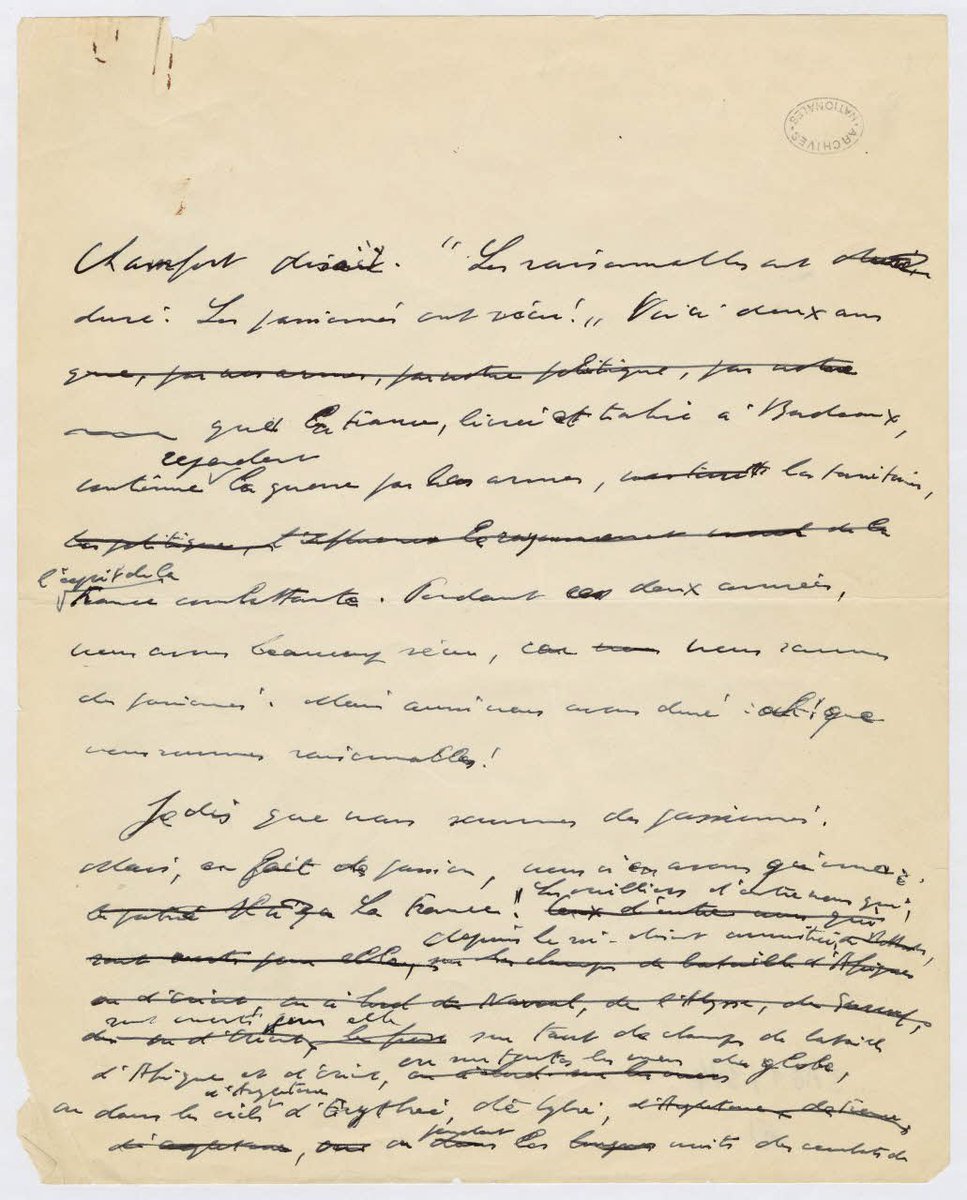 ARCHIVES NATIONALES
Chamfort disait : "Les raisonnables ont
duré. Les passionnés ont vécu !" Voici deux ans
que, par nos armes, par notre politique, par notre
que la France, livrée et trahie à Bordeaux,
cependant
continue la guerre par les armes, les territoires,
la politique, l'influence le rayonnement moral de la
l'esprit de la
France combattante. Pendant ces deux années,
nous avons beaucoup vécu, car nous nous sommes
des passionnés. Mais aussi nous avons duré : ah ! que
nous sommes raisonnables !
Je dis que nous sommes des passionnés.
Mais, en fait de passion, nous n'en avons qu'une :
Les milliers d'entre nous qui,
la patrie la France ! Ceux d'entre nous qui
depuis le soi-disant armistice de Rethondes,
sont morts pour elle, sur les champs de bataille d'Afrique
ou d'Orient, ou à bord du Narval, de l'Alysse, du Surcouf,
sont morts pour elle
ou d'Orient, sur tant de champs de bataille
ou sur toutes les mers du globe,
d'Afrique et d'Orient, ou à bord sur les mers
d'Angleterre
ou dans le ciel d'Erythrée, de Lybie, d'Angleterre,
pendant
d'Angleterre, ou dans les longues nuits des combats de